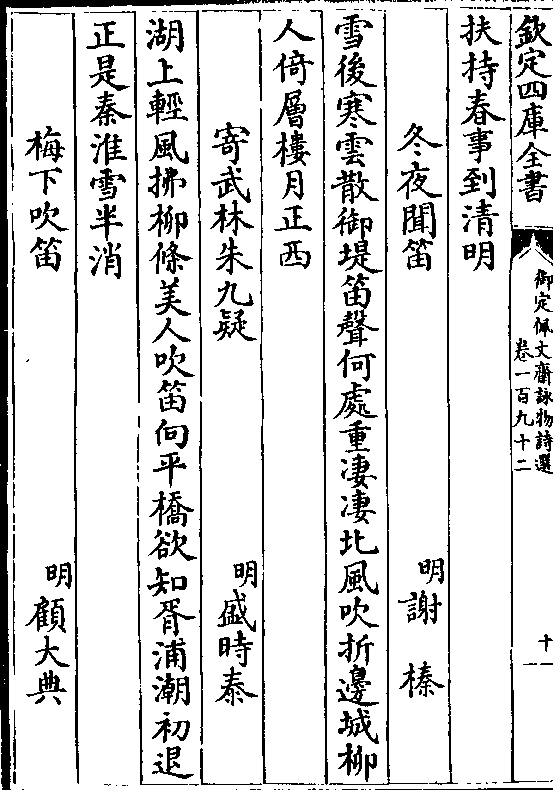 欽定四庫全書
御定佩文齋詠物詩選
卷一百九十二
十
扶持春事到清明
冬夜聞笛
明謝榛
雪後寒雲散御堤笛聲何處重凄凄北風吹折邊城柳
人倚層樓月正西
寄武林朱九疑
明盛時泰
湖上輕風拂柳條美人吹笛向平橋欲知胥浦潮初退
正是秦淮雪半消
梅下吹笛
明顧大典